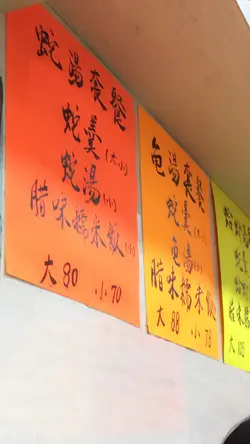 蛇湯套餐
蛇羹(大小)
蛇湯(小)
腊味糯米飯(小)
大 80 小 70
龟湯套餐
蛇羹
龟湯(小)
腊味糯米飯
大 88 小 78
腊味
大